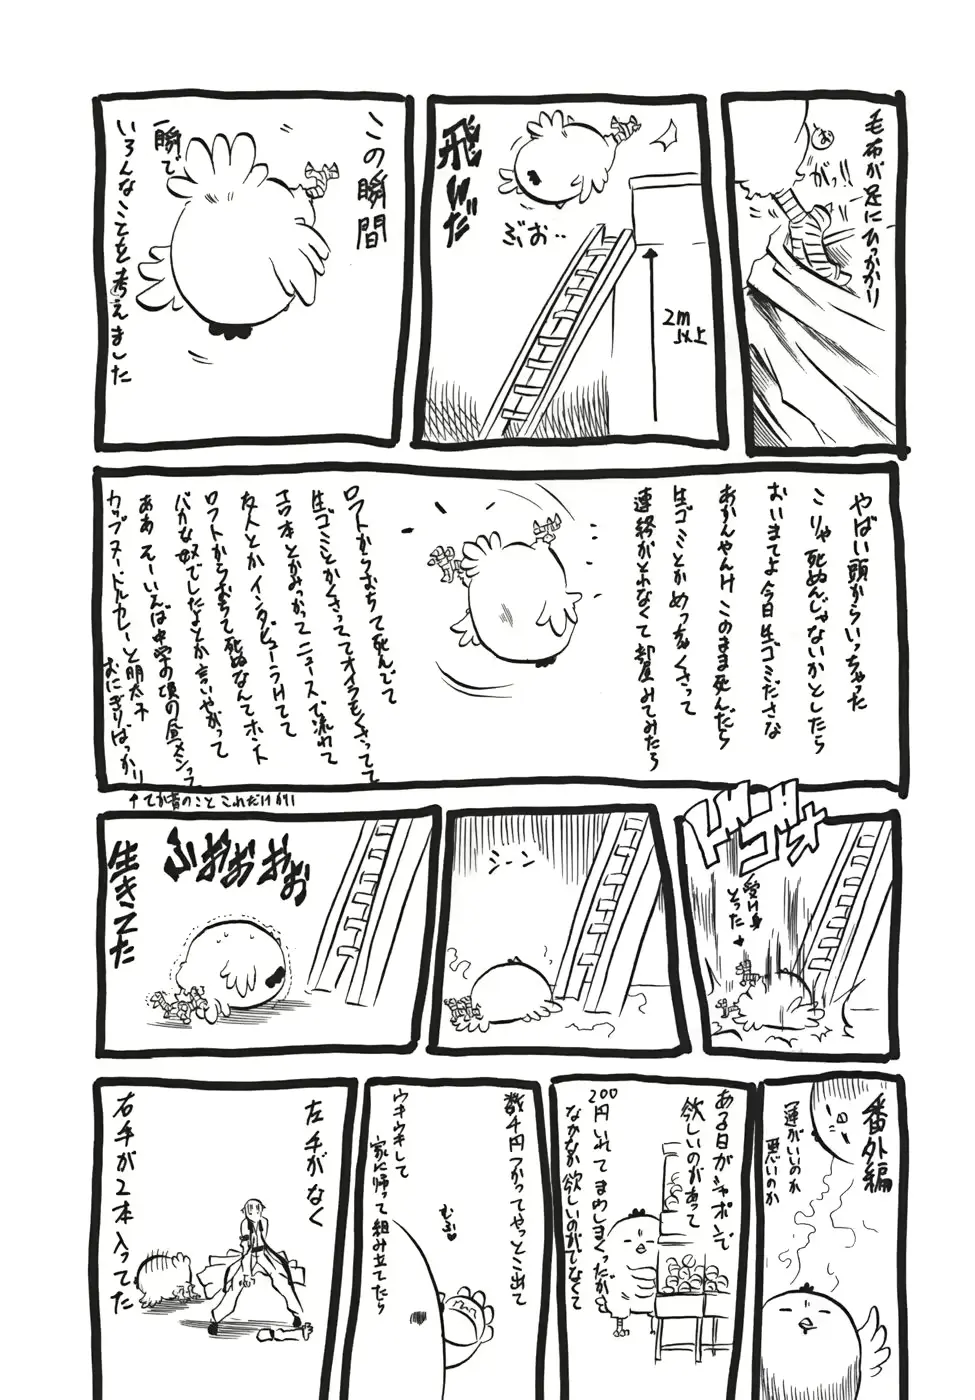 毛布が足にひっかかり
お
がっ!!
飛んだ
ぶお‥
2m
以上
この瞬間
一瞬で
いろんなことを考えました
やばい頭からいっちゃった
こりゃ死ぬんじゃないかとしたら
おいまてよ今日生ゴミださな
あかんやんけこのまま死んだら
生ゴミとかめっちゃくさって
連絡がとれなくて部屋みてみたら
ロフトからおちて死んでて
生ゴミとかくさっててオイラもくさってて
エロ本とかみっかってニュースで流れて
友人とかインタビューうけてて
ロフトからおちて死ぬなんてホント
バカな奴でしたよとか言いやがって
ああそーいえば中学の頃の昼メシって
カップヌードルカレーと明太子
おにぎりばっかり
↑てか昔のことこれだけかい
ドゴォ
受け身
とった
シーン
ふおおおおお
生きてた
番外編
運がいいのか
悪いのか
ある日がシャポンで
欲しいのがあって
200円いれてまわしまくったが
なかなか欲しいのがでなくて
数千円つかってやっとこ出て
ウキウキして
家に帰って組み立てたら
むふ♥
左手がなく
右手が2本入ってた